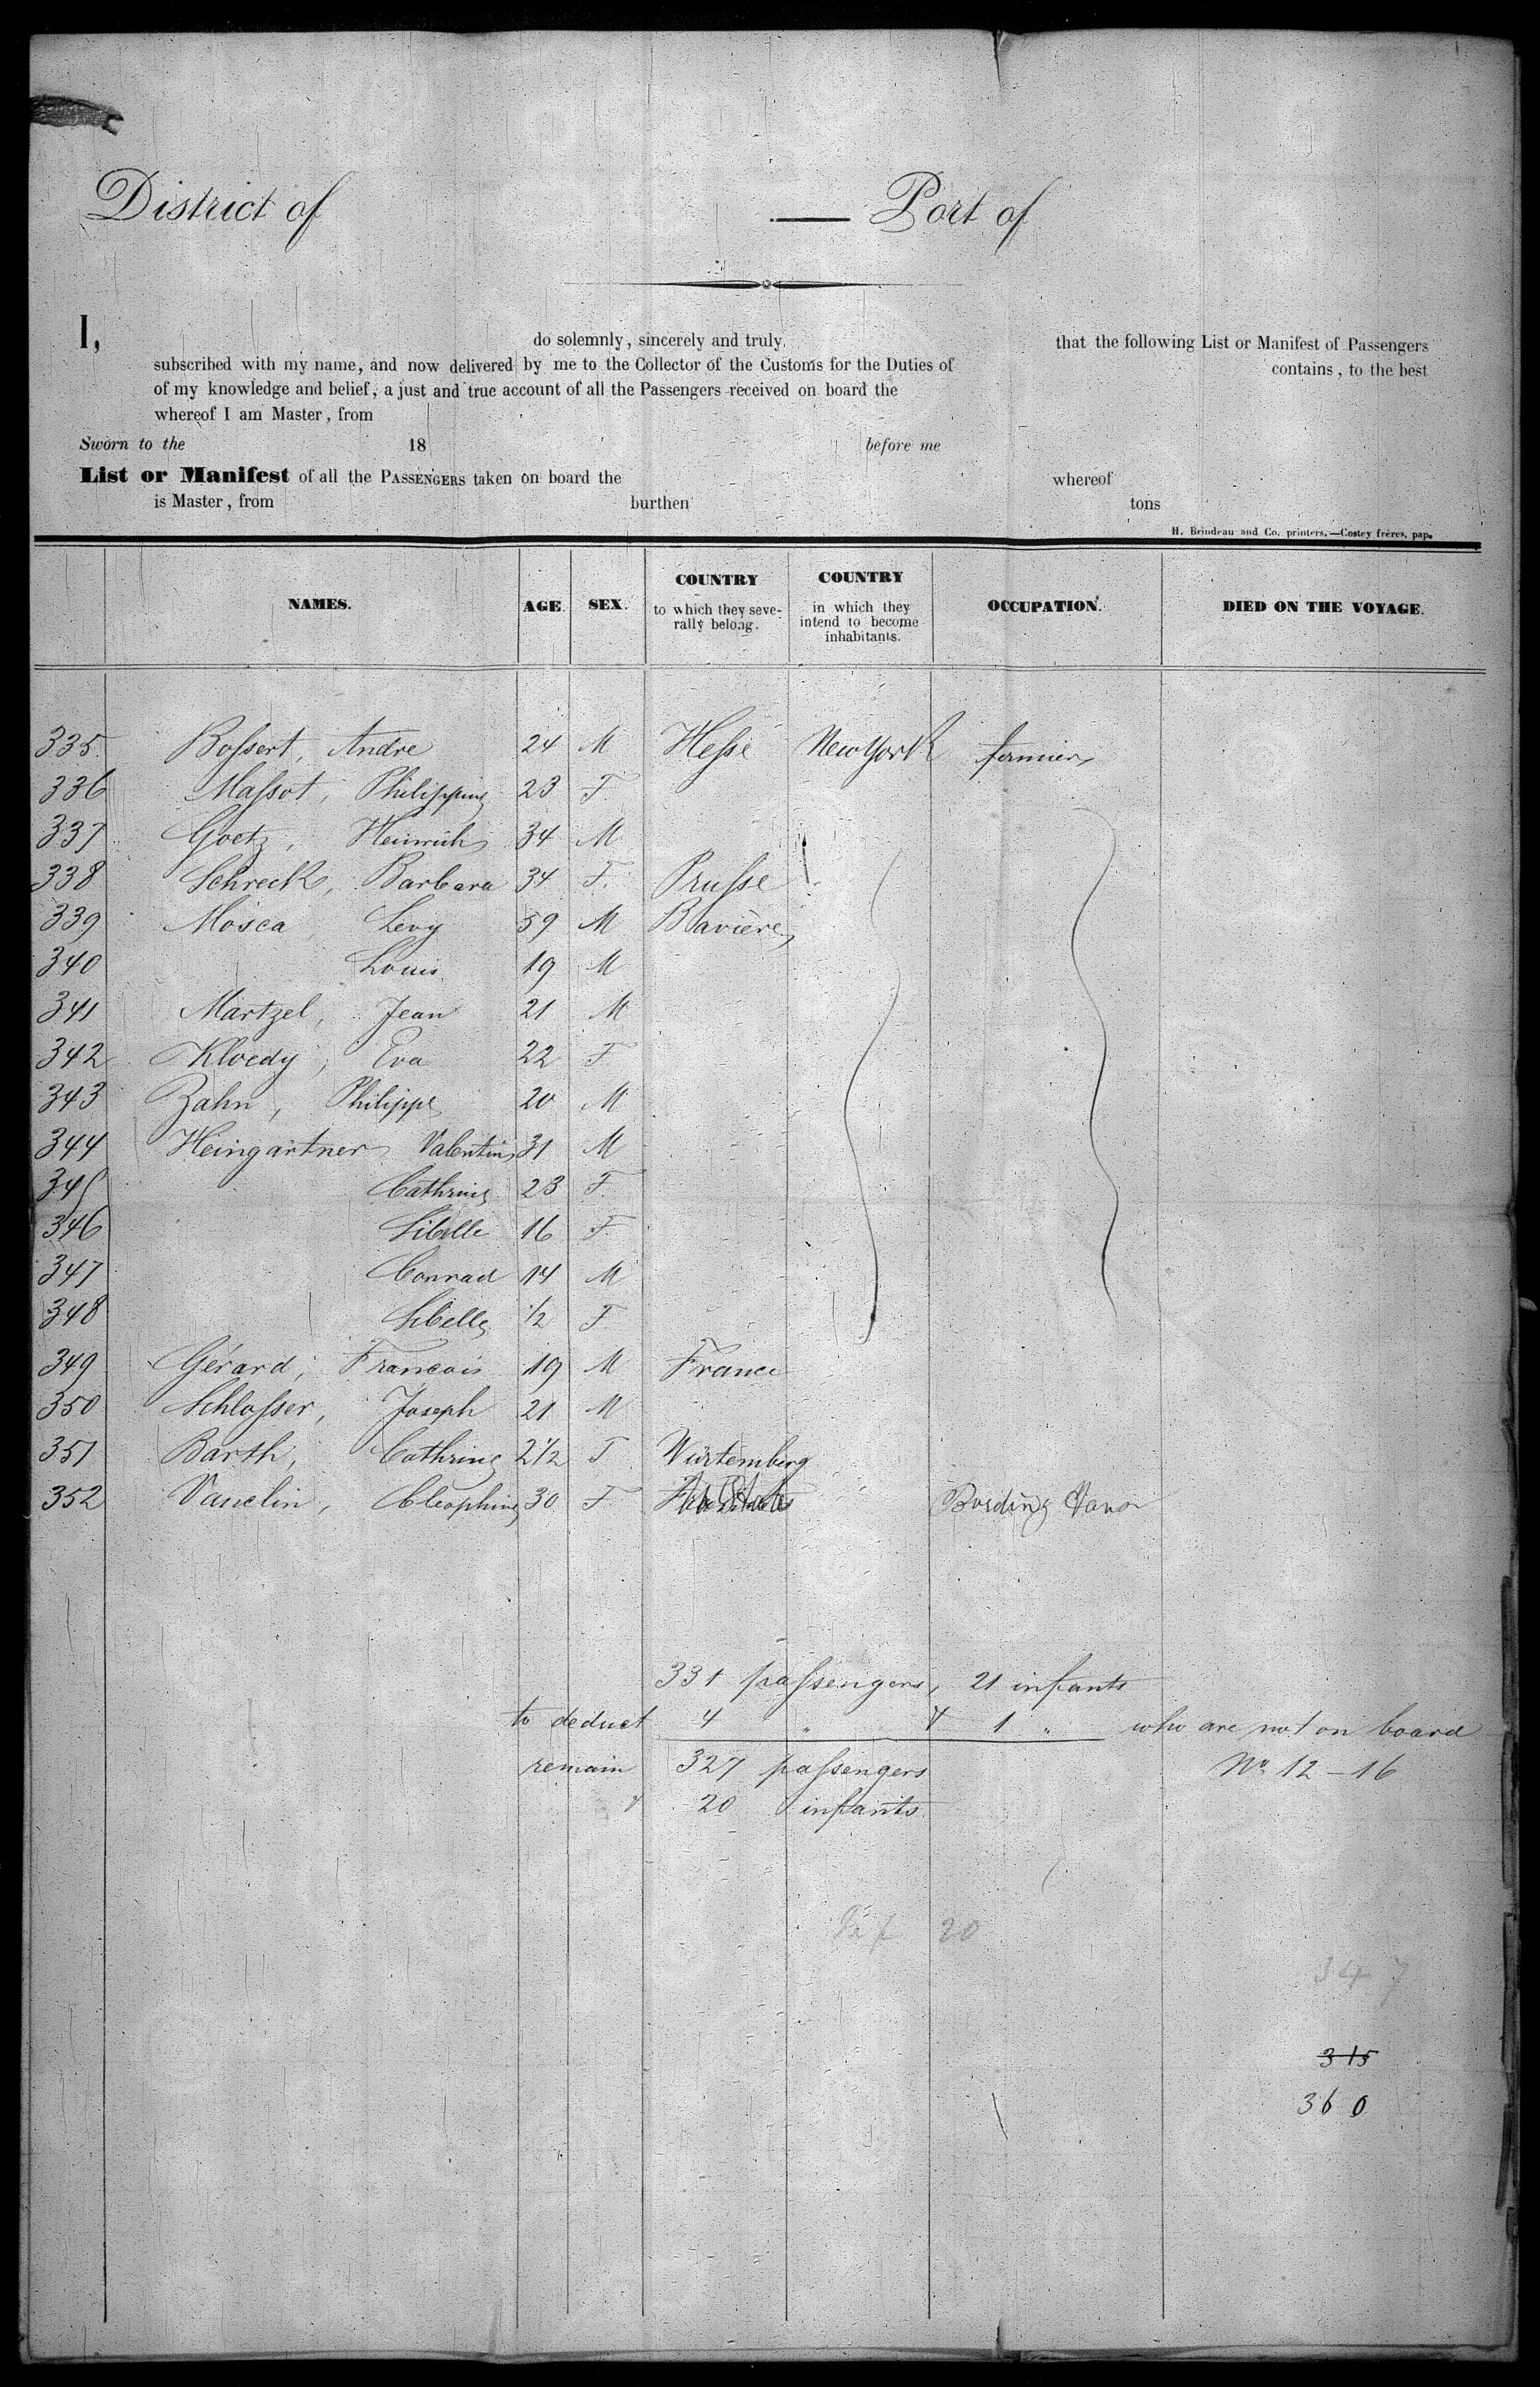 District of — Port of
I, do solemnly, sincerely and truly. that the following List or Manifest of Passengers
subscribed with my name, and now delivered by me to the Collector of the Customs for the Duties of contains, to the best
of my knowledge and belief, a just and true account of all the Passengers received on board the
whereof I am Master, from
Sworn to the 18 before me
List or Manifest of all the PASSENGERS taken on board the whereof
is Master, from burthen tons
H. Brindeau and Co. printers.—Costey frères, pap.
NAMES. AGE. SEX. COUNTRY to which they severally belong. COUNTRY in which they intend to become inhabitants. OCCUPATION. DIED ON THE VOYAGE.
335 Bossert, Andre 24 M Hesse New York farmer
336 Massot, Philippine 23 F.
337 Goetz, Heinrich 34 M
338 Schreck, Barbara 34 F. Prusse
339 Mosca, Levy 59 M Bavière
340 Louis 19 M
341 Martzel, Jean 21 M
342 Kloedy, Eva 22 F.
343 Zahn, Philippe 20 M
344 Heingartner Valentin 31 M
345 Cathrine 23 F.
346 Sibelle 16 F.
347 Conrad 14 M
348 Sibelle 1/2 F
349 Gérard, François 19 M France
350 Schlosser, Joseph 21 M
351 Barth, Cathrine 2 1/2 F Würtemberg
352 Vauclin, Cleophine 30 F Bording
331 passengers, 21 infants
to deduct 4 " & 1 " who are not on board
remain 327 passengers No 12-16
& 20 infants
20
347
315
360